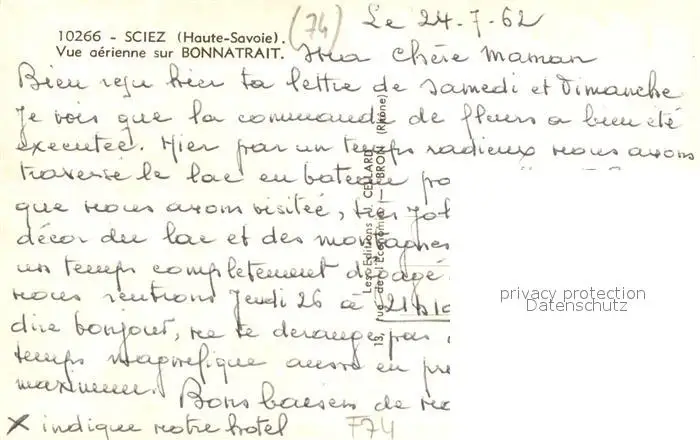 (74)
Le 24-7-62
10266 - SCIEZ (Haute-Savoie).
Vue aérienne sur BONNATRAIT.
Ma chère maman
Bien reçu hier ta lettre de samedi et dimanche
Je vois que la commande de fleurs a bien été
executée. Hier par un temps radieux nous avons
traversé le lac en bateau
que nous avons visitée, très
décor du lac et des montagnes
un temps completement dégagé
nous rentrons Jeudi 26 à 21h10
dire bonjour, ne te derange pas
temps magnefique aussi en
maximum. Bons baisers de
X indique notre hotel
F74
Les Editions J. CELLARD
13, rue de l'Economie — BRON (Rhône)
privacy protection
Datenschutz